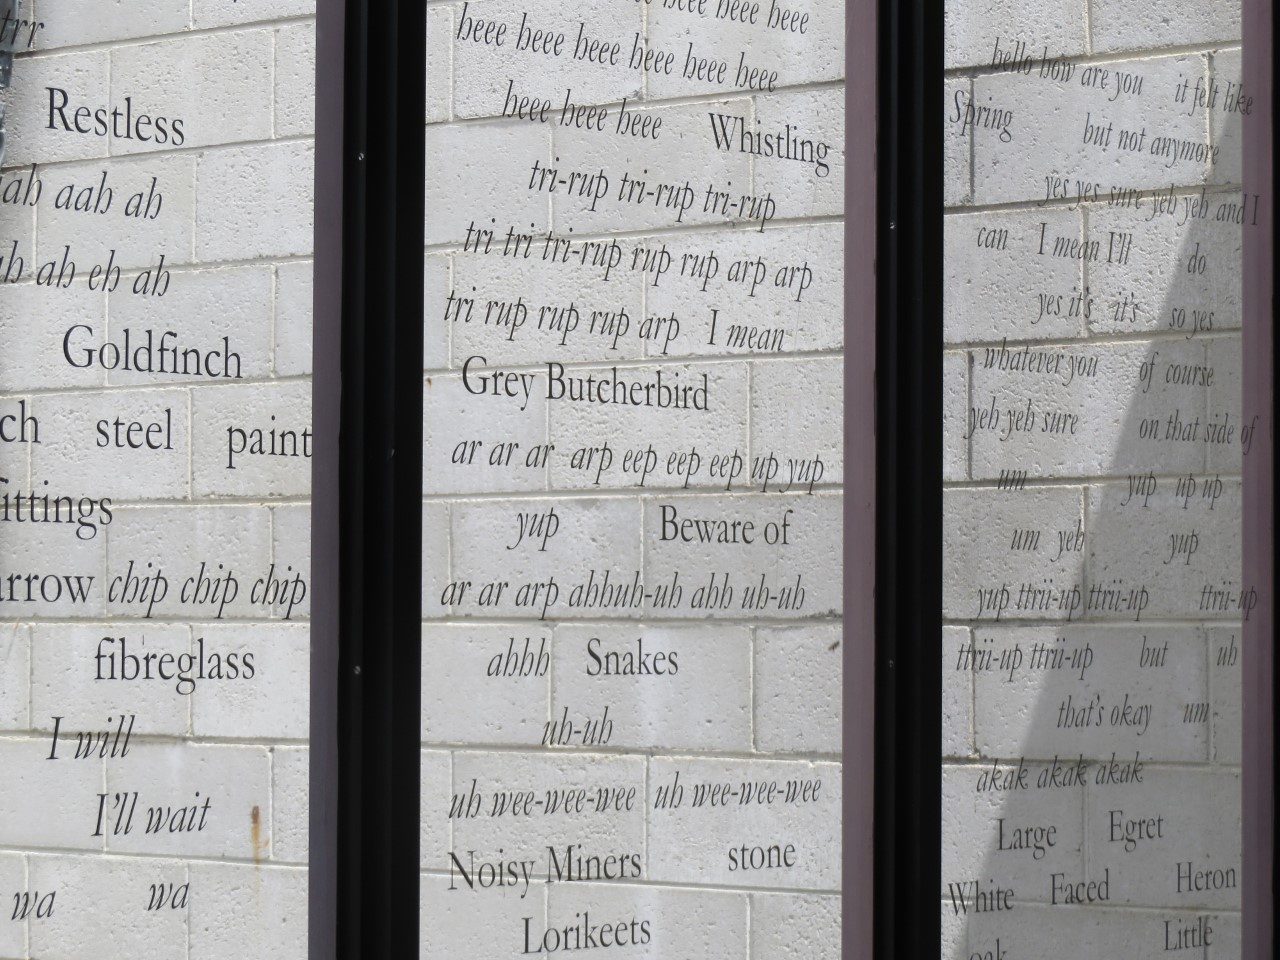 trr
Restless
aah ah
ah eh ah
Goldfinch
steel paint
fittings
chip chip chip
fibreglass
I will
I'll wait
wa wa
heee heee heee
heee heee heee heee heee heee
heee heee heee Whistling
tri-rup tri-rup tri-rup
tri tri tri-rup rup rup arp arp
tri rup rup rup arp I mean
Grey Butcherbird
ar ar ar arp eep eep eep up yup
yup Beware of
ar ar arp ahhuh-uh ahh uh-uh
ahhh Snakes
uh-uh
uh wee-wee-wee uh wee-wee-wee
Noisy Miners stone
Lorikeets
hello how are you it felt like
Spring but not anymore
yes yes sure yeh yeh and I
can I mean I'll do
yes it's it's so yes
whatever you of course
yeh yeh sure on that side of
um yup up up
um yeh yup
yup ttrii-up ttrii-up ttrii-up
ttrii-up ttrii-up but uh
that's okay um
akak akak akak
Large Egret
White Faced Heron
Little